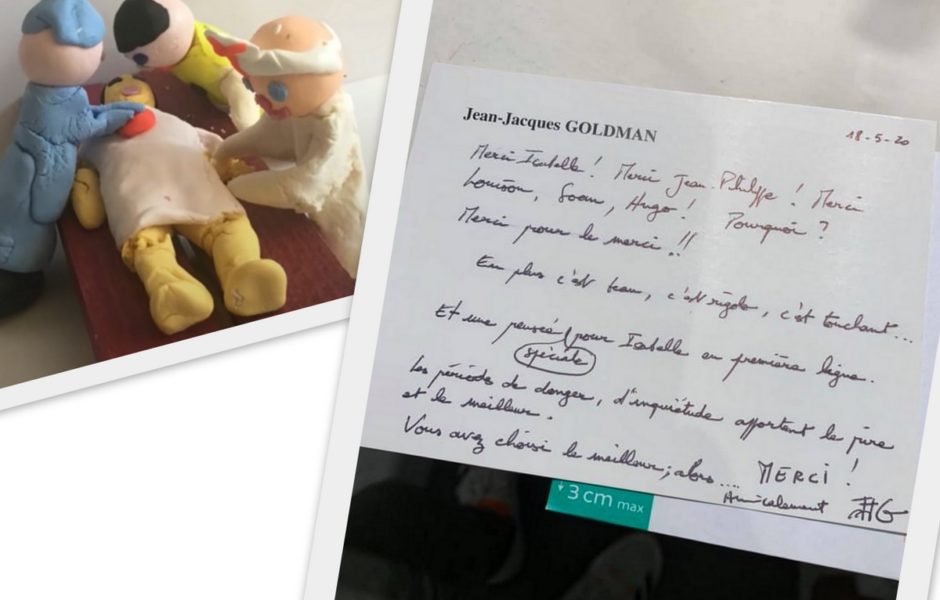 Jean-Jacques GOLDMAN
18-5-20
Merci Isabelle ! Merci Jean-Philippe ! Merci
Louison, Soan, Hugo ! Pourquoi ?
Merci pour le merci !!
En plus c'est beau, c'est rigolo, c'est touchant...
Et une pensée (pour Isabelle en première ligne.
spéciale
Les périodes de danger, d'inquiétude apportent le pire
et le meilleur.
Vous avez choisi le meilleur ; alors.... MERCI !
Amicalement JJG
3 cm max